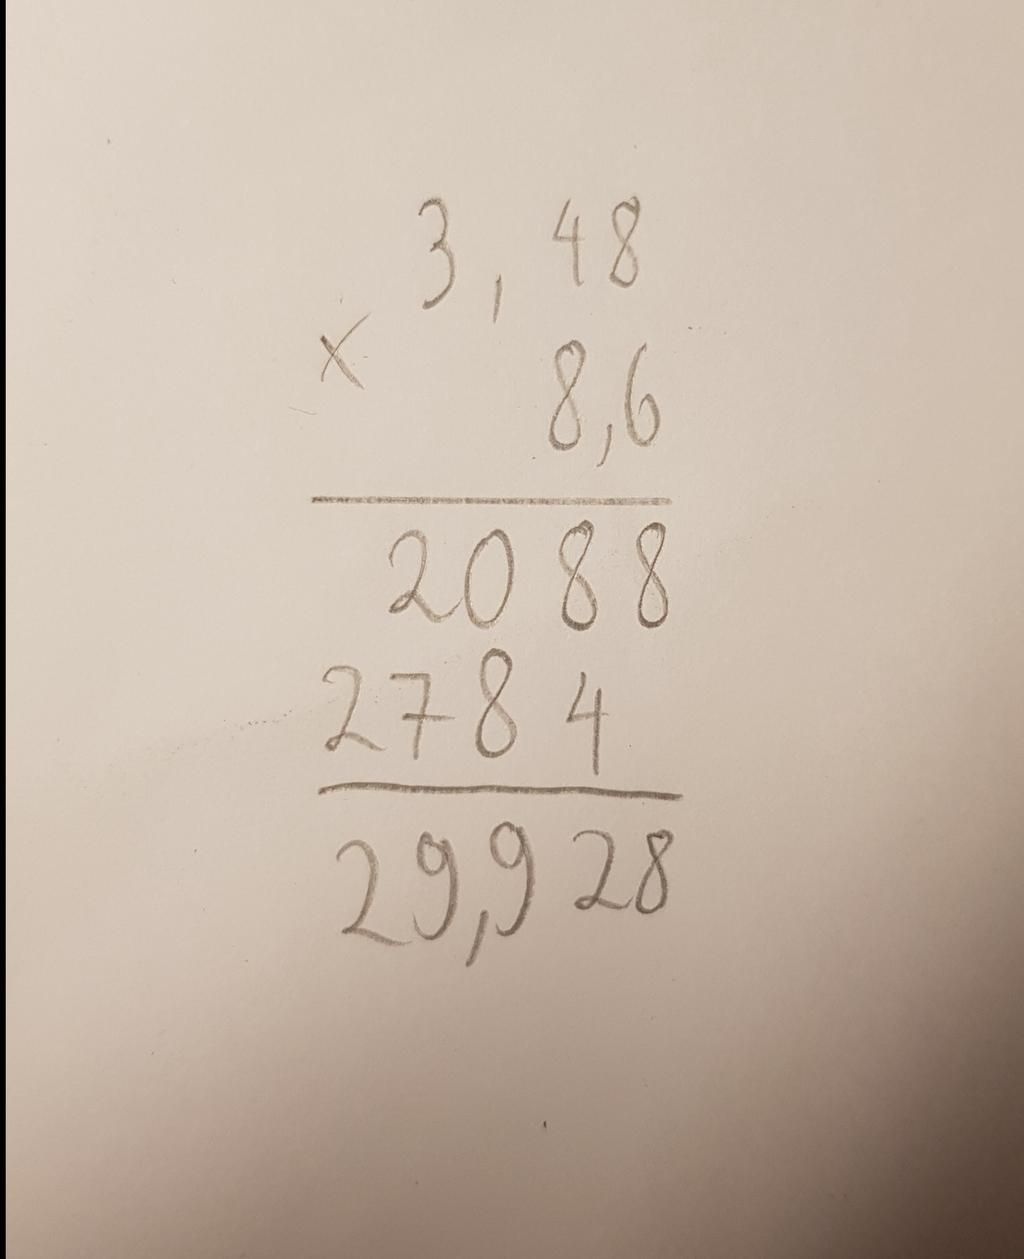 3,48
×
8,6
2088
2784
29,928